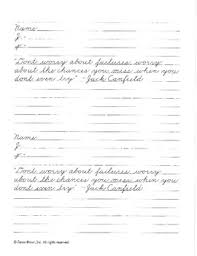 Name
J.
P.
"Dont worry about failures, worry
about the chances you miss when you
dont even try" - Jack Canfield
Name
J.
P.
"Dont worry about failures, worry
about the chances you miss when you
dont even try" - Jack Canfield
Inc. All rights reserved.